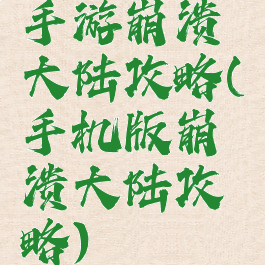 手游崩溃
大陆攻略(
手机版崩
溃大陆攻
略)